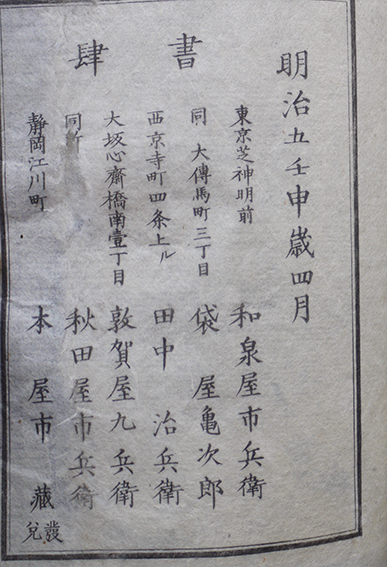 明治五壬申歳四月
書肆
東京芝神明前 和泉屋市兵衛
同 大傳馬町三丁目 袋屋亀次郎
西京寺町四条上ル 田中治兵衛
大坂心齋橋南壹丁目 敦賀屋九兵衛
同所 秋田屋市兵衛
静岡江川町 本屋市藏
發兌